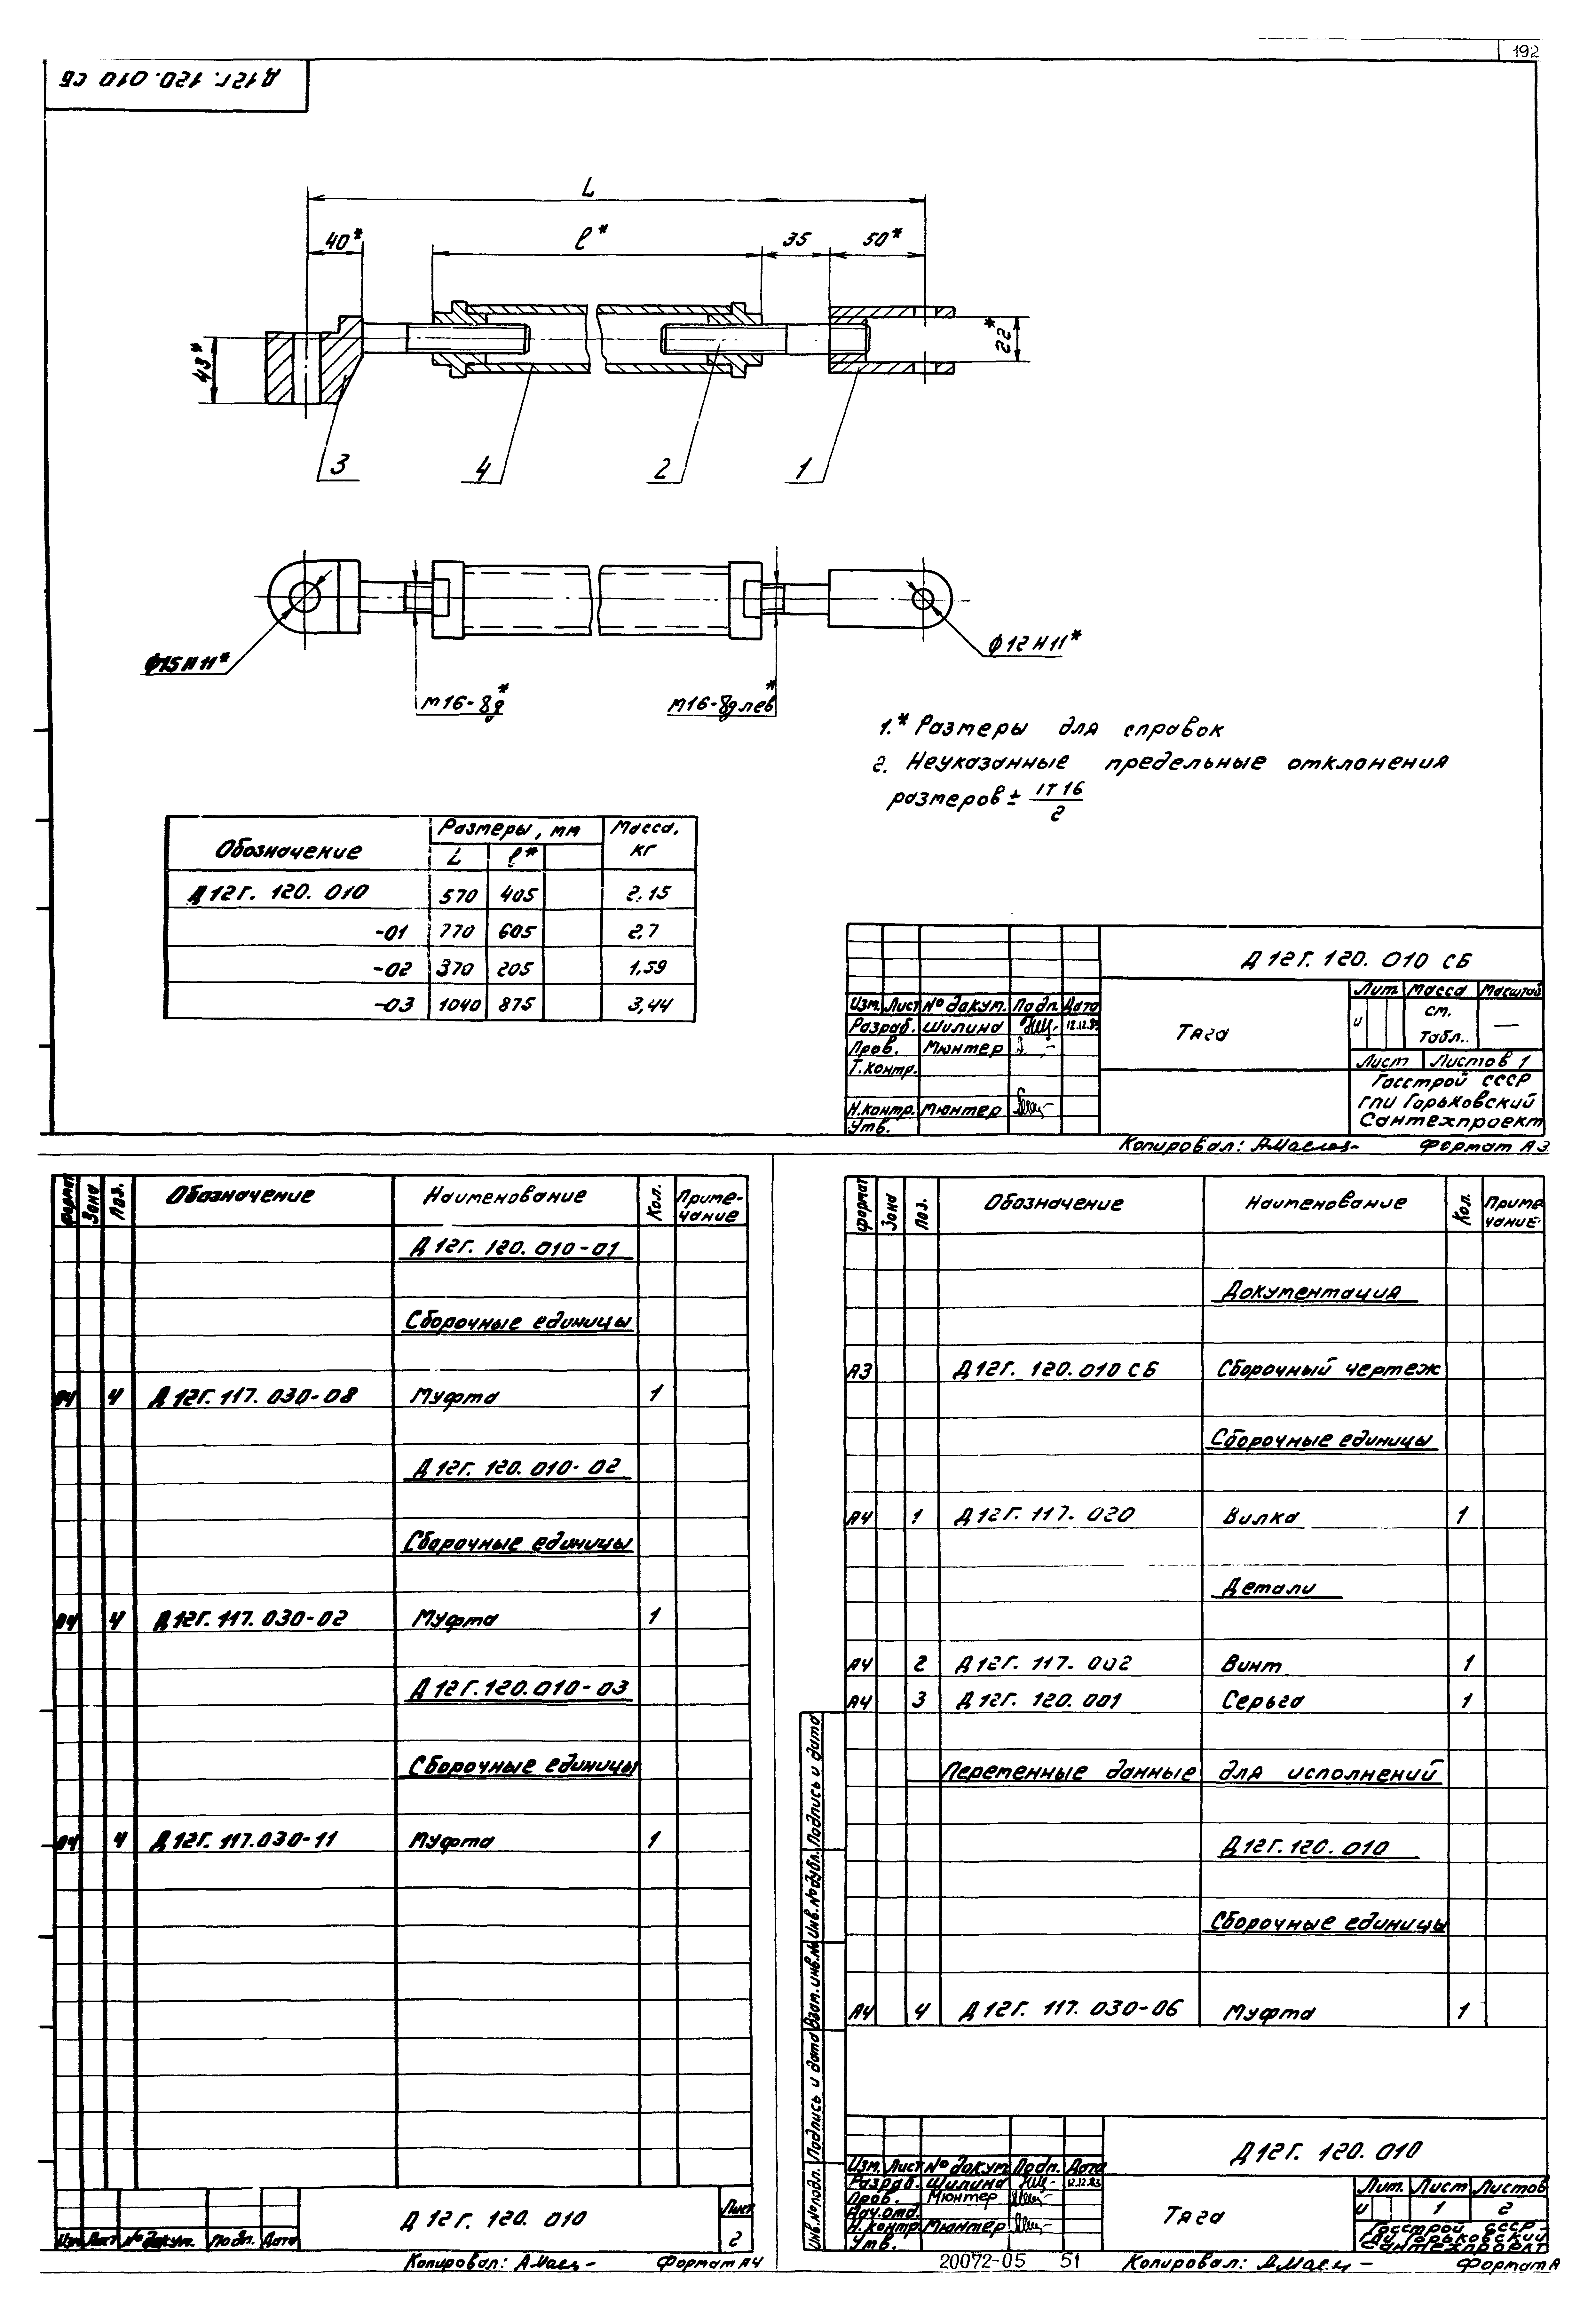 192
Д12Г. 120. 010 СБ
L
40*
ℓ*
35
50*
43*
22*
3
4
2
1
Ф15Н11*
Ф12Н11*
М16-8g*
М16-8g лев*
1.* Размеры для справок
2. Неуказанные предельные отклонения
размеров ± IT16/2
Обозначение Размеры, мм Масса, кг
L ℓ*
Д12Г. 120. 010 570 405 2,15
-01 770 605 2,7
-02 370 205 1,59
-03 1040 875 3,44
Д12Г. 120. 010 СБ
Изм. Лист № докум. Подп. Дата
Разраб. Шилина 12.12.83
Пров. Мюнтер
Т.контр.
Н.контр. Мюнтер
Утв.
Тяга
Лит. Масса Масштаб
И см. табл. —
Лист Листов 1
Госстрой СССР
ГПИ Горьковский
Сантехпроект
Копировал: Формат А3
Формат Зона Поз. Обозначение Наименование Кол. Примечание
Д12Г. 120. 010-01
Сборочные единицы
А4 4 Д12Г. 117. 030-08 Муфта 1
Д12Г. 120. 010-02
Сборочные единицы
А4 4 Д12Г. 117. 030-02 Муфта 1
Д12Г. 120. 010-03
Сборочные единицы
А4 4 Д12Г. 117. 030-11 Муфта 1
Изм. Лист № докум. Подп. Дата
Д12Г. 120. 010
Лист
2
Копировал: Формат А4
Формат Зона Поз. Обозначение Наименование Кол. Примечание
Документация
А3 Д12Г. 120. 010 СБ Сборочный чертеж
Сборочные единицы
А4 1 Д12Г. 117. 020 Вилка 1
Детали
А4 2 Д12Г. 117. 002 Винт 1
А4 3 Д12Г. 120. 001 Серьга 1
Переменные данные для исполнений
Д12Г. 120. 010
Сборочные единицы
А4 4 Д12Г. 117. 030-06 Муфта 1
Инв. № подл. Подпись и дата Взам. инв. № Инв. № дубл. Подпись и дата
Д12Г. 120. 010
Изм. Лист № докум. Подп. Дата
Разраб. Шилина 12.12.83
Пров. Мюнтер
Нач. отд.
Н. контр. Мюнтер
Утв.
Тяга
Лит. Лист Листов
И 1 2
Госстрой СССР
ГПИ Горьковский
Сантехпроект
20072-05 51 Копировал: Формат А